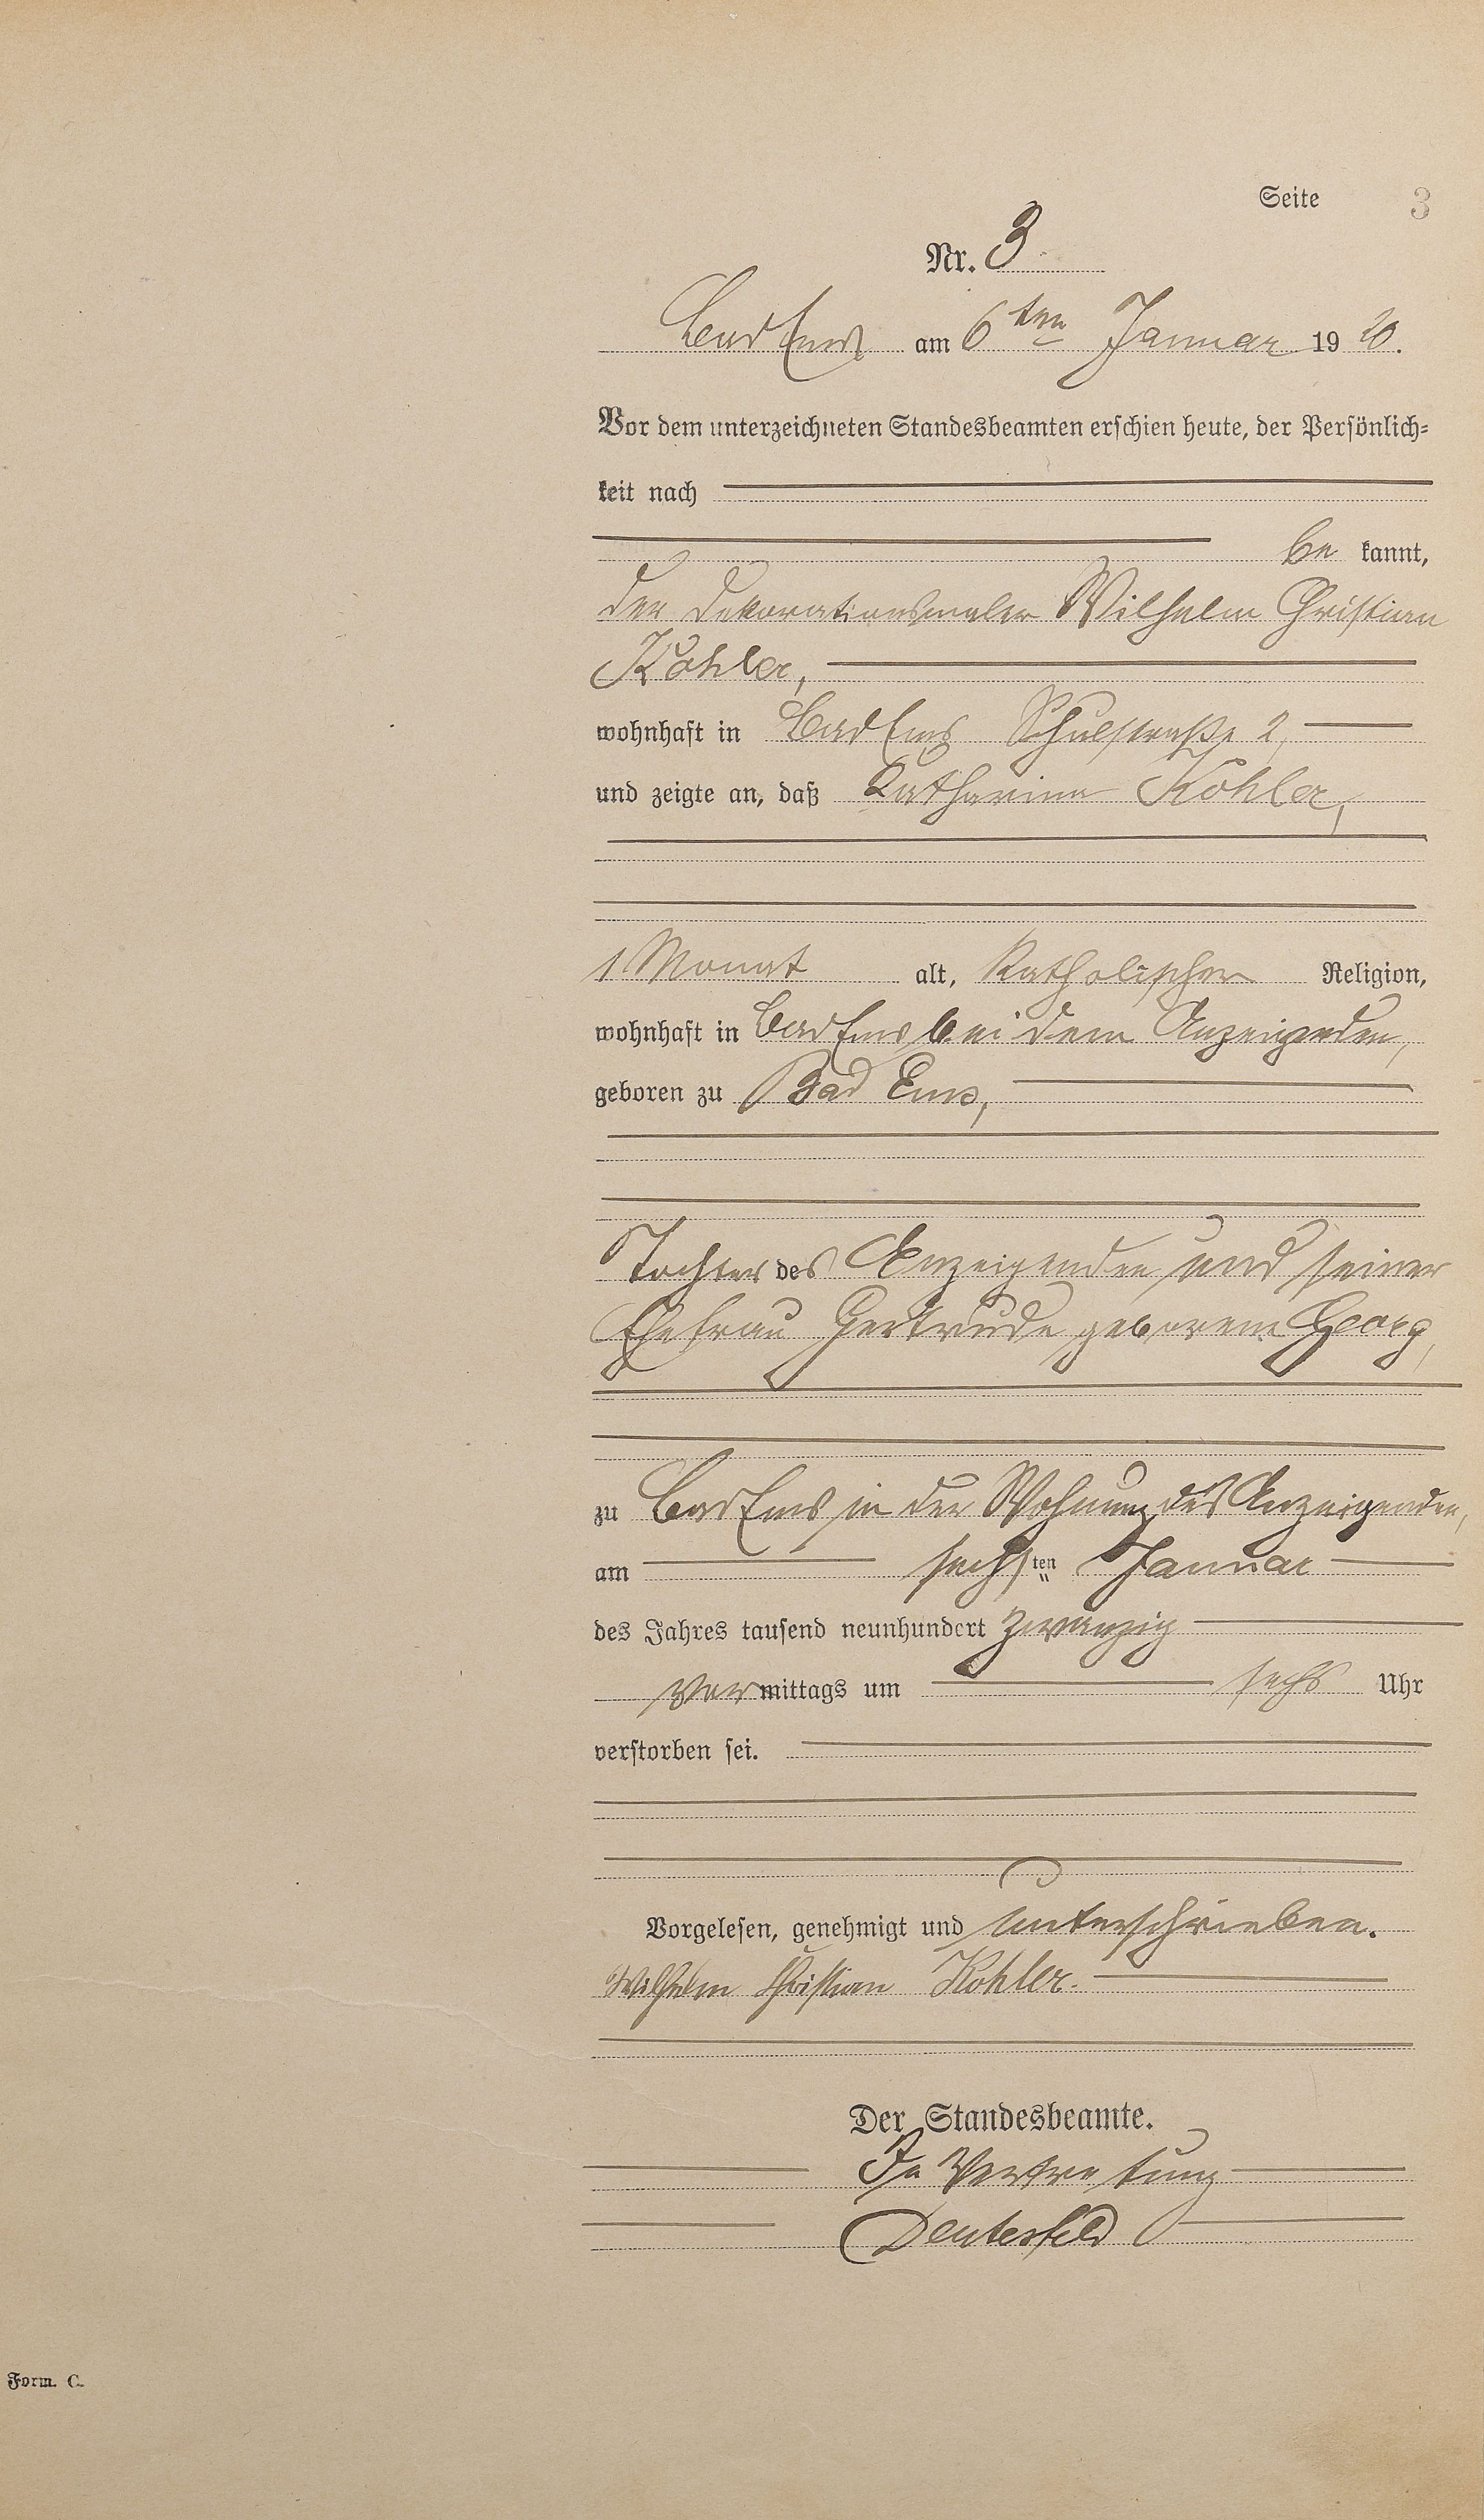 Seite 3
Nr. 3
Bad Ems am 6ten Januar 19 20.
Vor dem unterzeichneten Standesbeamten erschien heute, der Persönlich-
keit nach
be kannt,
der Dekorationsmaler Wilhelm Christian
Kohler,
wohnhaft in Bad Ems Schulstraße 2,
und zeigte an, daß Katharina Kohler,
1 Monat alt, katholischer Religion,
wohnhaft in Bad Ems bei dem Anzeigenden,
geboren zu Bad Ems,
Tochter des Anzeigenden und seiner
Ehefrau Gertrude geborene Georg,
zu Bad Ems in der Wohnung des Anzeigenden,
am sechsten Januar
des Jahres tausend neunhundert zwanzig
Vormittags um sechs Uhr
verstorben sei.
Vorgelesen, genehmigt und unterschrieben.
Wilhelm Christian Kohler.
Der Standesbeamte.
In Vertretung
Deutesfeld
Form. C.